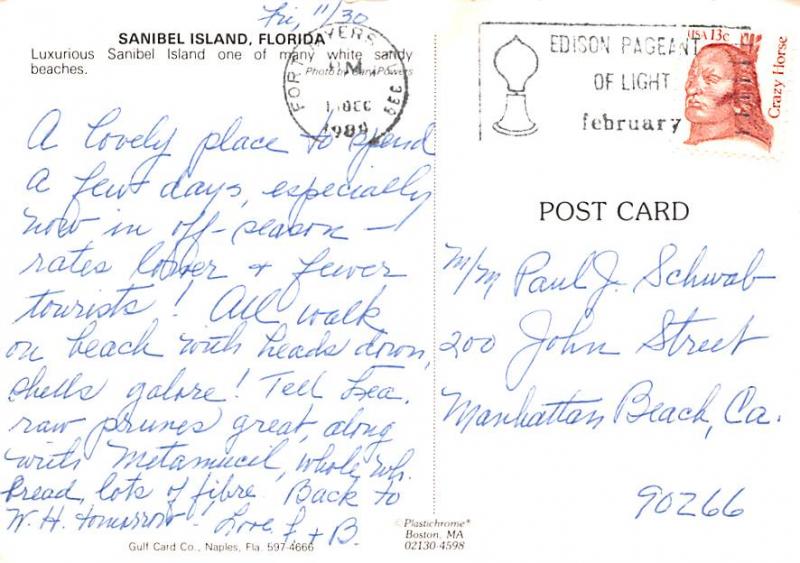 Fri, 11/30
SANIBEL ISLAND, FLORIDA
Luxurious Sanibel Island one of many white sandy
beaches.
Photo by Carl Powers
FORT MYERS, FL
PM
1 DEC
1989
339
EDISON PAGEANT
OF LIGHT
february
USA 13c
Crazy Horse
A lovely place to spend
a few days, especially
now in off-season —
rates lower + fewer
tourists! All walk
on beach with heads down,
shells galore! Tell
raw prunes great, along
with Metamucil, whole wh.
bread, lots of fibre. Back to
W.H. tomorrow - Love, + B.
POST CARD
M/M Paul J. Schwab
200 John Street
Manhattan Beach, Ca.
90266
Gulf Card Co., Naples, Fla. 597-4666
Plastichrome®
Boston, MA
02130-4598